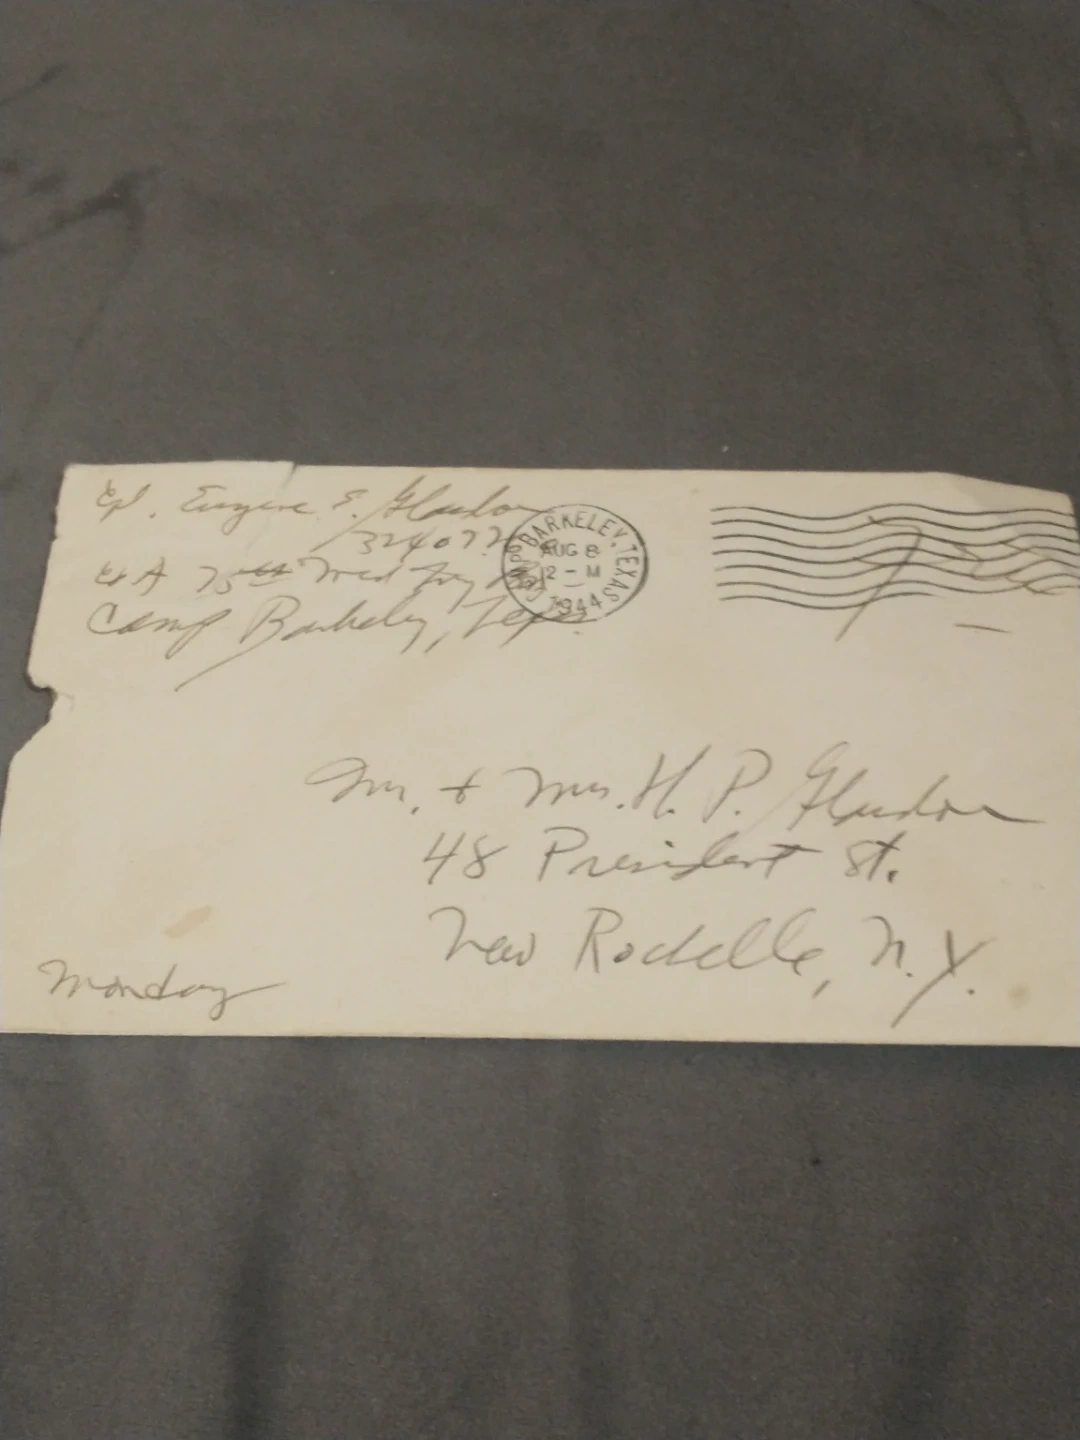 Cpl. Eugene E. Gladon
324077
Co A 75th Med Trg Bn
Camp Barkeley, Texas
CAMP BARKELEY, TEXAS
AUG 8
12 - M
1944
Free
Mr. + Mrs. H. P. Gladon
48 President St.
New Rochelle, N.Y.
Monday